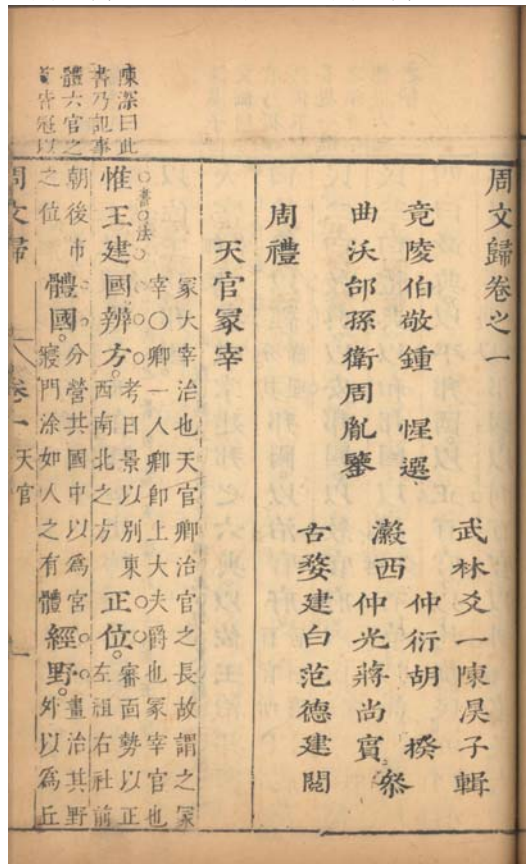 周文歸卷之一
武林爻一陳淏子輯
竟陵伯敬鍾惺選
仲衍胡揆
曲沃邰孫衛周胤鑒
瀫西仲光蔣尚賓叅
古婺建白范德建閲
周禮
天官冢宰
冢大宰治也天官卿治官之長故謂之冢
宰○卿一人卿即上大夫爵也冢宰官也
陳深曰此
書乃記事
體六官之
首皆冠以
書法
惟王建國辨方
考日景以別東
西南北之方
正位
審面勢以正
左祖右社前
朝後市
之位
體國
分營其國中以爲宮
寢門涂如人之有體
經野
畫治其野
外以爲丘
周文歸
卷一
天官
一